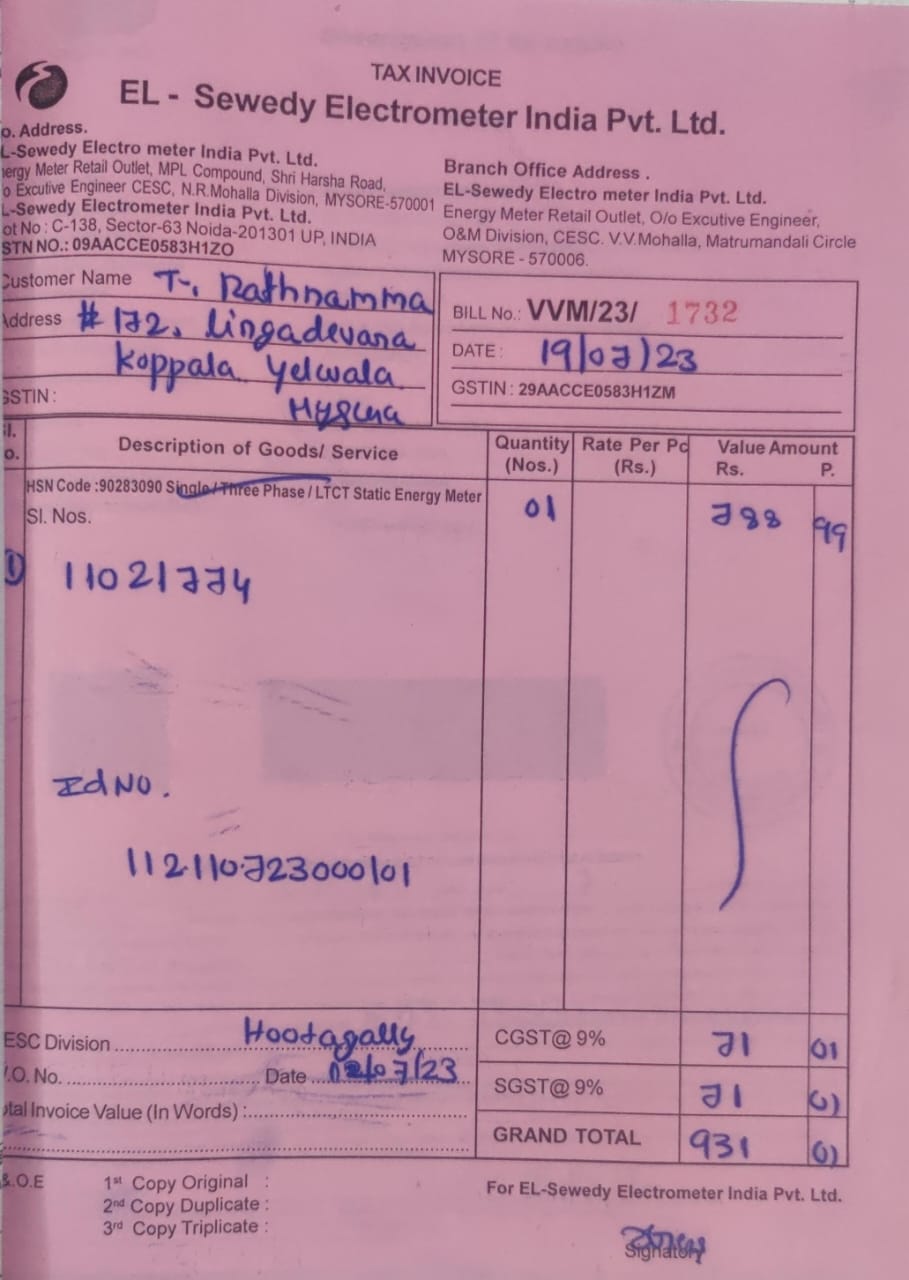 TAX INVOICE
EL - Sewedy Electrometer India Pvt. Ltd.
o. Address.
L-Sewedy Electro meter India Pvt. Ltd.
nergy Meter Retail Outlet, MPL Compound, Shri Harsha Road,
o Excutive Engineer CESC, N.R.Mohalla Division, MYSORE-570001
L-Sewedy Electrometer India Pvt. Ltd.
ot No : C-138, Sector-63 Noida-201301 UP, INDIA
STN NO.: 09AACCE0583H1ZO
Branch Office Address .
EL-Sewedy Electro meter India Pvt. Ltd.
Energy Meter Retail Outlet, O/o Excutive Engineer,
O&M Division, CESC. V.V.Mohalla, Matrumandali Circle
MYSORE - 570006.
Customer Name T. Rathnamma
Address # 172, Lingadevana
Koppala Yelwala
GSTIN :
BILL No.: VVM/23/ 1732
DATE : 19/07/23
GSTIN : 29AACCE0583H1ZM
Sl. o. Description of Goods/ Service Quantity (Nos.) Rate Per Pc (Rs.) Value Amount Rs. P.
HSN Code :90283090 Single / Three Phase / LTCT Static Energy Meter 01 788 99
Sl. Nos.
1 11021774
Id NO.
112110723000101
ESC Division Hootagally CGST@ 9% 71 01
.O. No. Date /07/23 SGST@ 9% 71 01
otal Invoice Value (In Words) :
GRAND TOTAL 931 01
&.O.E
1st Copy Original :
2nd Copy Duplicate :
3rd Copy Triplicate :
For EL-Sewedy Electrometer India Pvt. Ltd.
Signatory